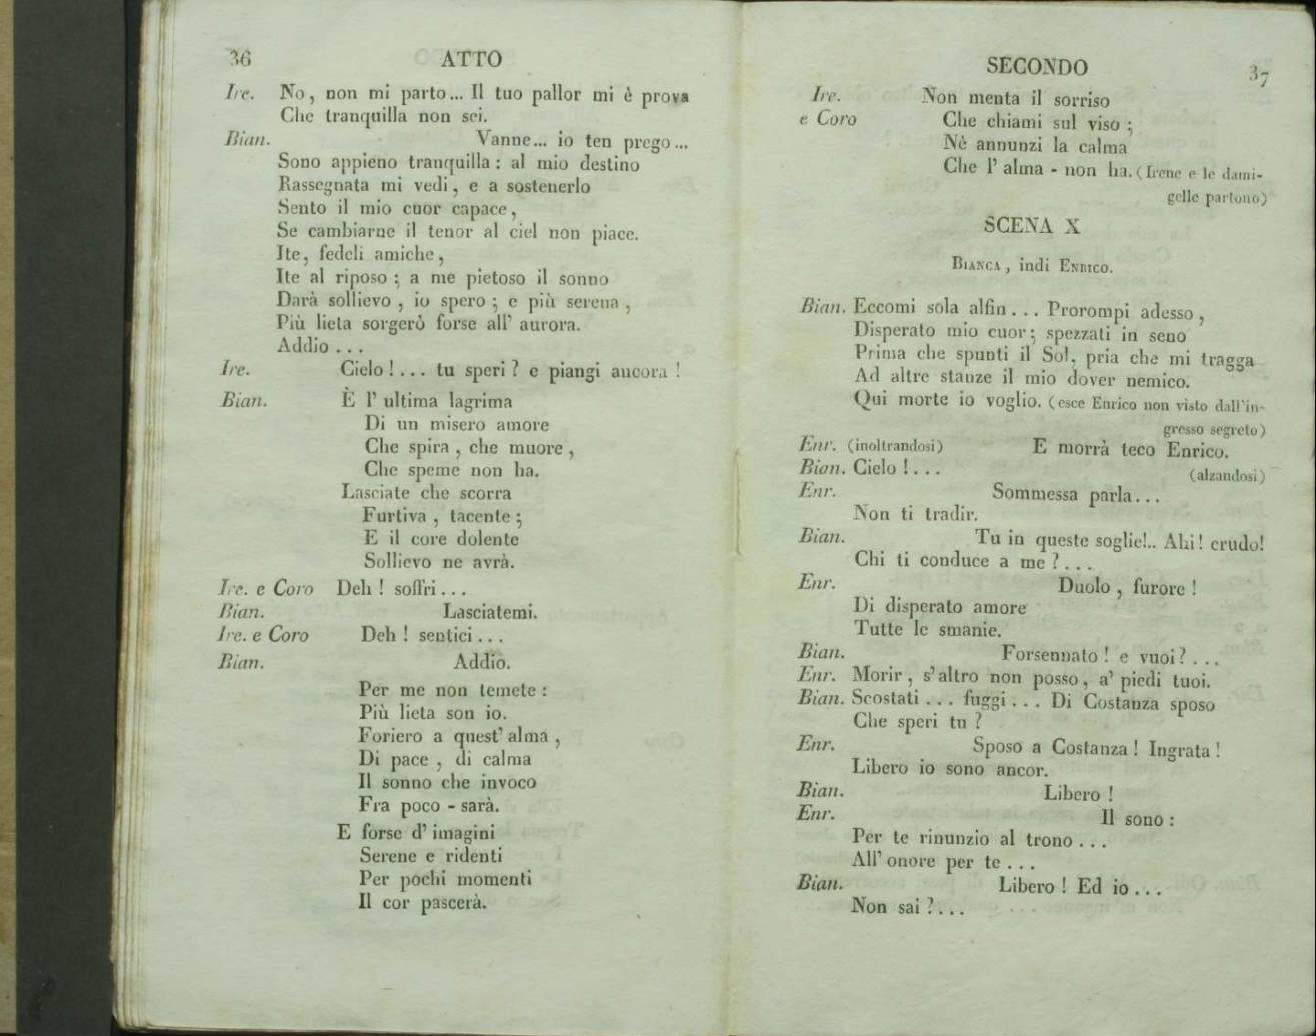 36 ATTO
Ire. No, non mi parto... Il tuo pallor mi è prova
Che tranquilla non sei.
Bian. Vanne... io ten prego...
Sono appieno tranquilla: al mio destino
Rassegnata mi vedi, e a sostenerlo
Sento il mio cuor capace,
Se cambiarne il tenor al ciel non piace.
Ite, fedeli amiche,
Ite al riposo; a me pietoso il sonno
Darà sollievo, io spero; e più serena,
Più lieta sorgerò forse all' aurora.
Addio...
Ire. Cielo!... tu speri? e piangi ancora!
Bian. È l' ultima lagrima
Di un misero amore
Che spira, che muore,
Che speme non ha.
Lasciate che scorra
Furtiva, tacente;
E il core dolente
Sollievo ne avrà.
Ire. e Coro Deh! soffri...
Bian. Lasciatemi.
Ire. e Coro Deh! sentici...
Bian. Addio.
Per me non temete:
Più lieta son io.
Foriero a quest' alma,
Di pace, di calma
Il sonno che invoco
Fra poco - sarà.
E forse d' imagini
Serene e ridenti
Per pochi momenti
Il cor pascerà.
SECONDO 37
Ire. Non menta il sorriso
e Coro Che chiami sul viso;
Nè annunzi la calma
Che l' alma - non ha. (Irene e le dami-
gelle partono)
SCENA X
BIANCA, indi ENRICO.
Bian. Eccomi sola alfin... Prorompi adesso,
Disperato mio cuor; spezzati in seno
Prima che spunti il Sol, pria che mi tragga
Ad altre stanze il mio dover nemico.
Qui morte io voglio. (esce Enrico non visto dall'in-
gresso segreto)
Enr. (inoltrandosi) E morrà teco Enrico.
Bian. Cielo!... (alzandosi)
Enr. Sommessa parla...
Non ti tradir.
Bian. Tu in queste soglie!.. Ahi! crudo!
Chi ti conduce a me?...
Enr. Duolo, furore!
Di disperato amore
Tutte le smanie.
Bian. Forsennato! e vuoi?...
Enr. Morir, s'altro non posso, a' piedi tuoi.
Bian. Scostati... fuggi... Di Costanza sposo
Che speri tu?
Enr. Sposo a Costanza! Ingrata!
Libero io sono ancor.
Bian. Libero!
Enr. Il sono:
Per te rinunzio al trono...
All' onore per te...
Bian. Libero! Ed io...
Non sai?...